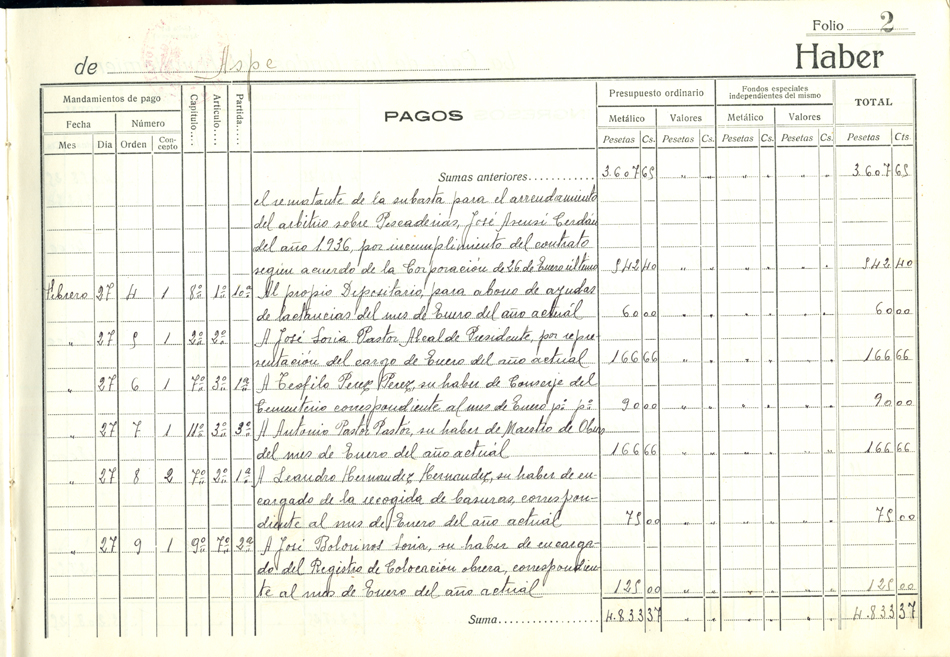 Folio 2
Haber
de Aspe
Mandamientos de pago
Fecha Número
Mes Día Orden Concepto
Capítulo.... Artículo.... Partida....
PAGOS
Presupuesto ordinario
Metálico Valores
Pesetas Cs. Pesetas Cs.
Fondos especiales
independientes del mismo
Metálico Valores
Pesetas Cs. Pesetas Cs.
TOTAL
Pesetas Cts.
Sumas anteriores............ 3.607 65 " " " " " " 3.607 65
el rematante de la subasta para el arrendamiento
del arbitrio sobre Pescaderias, José Asensi Cerdán
del año 1.936, por incumplimiento del contrato
segun acuerdo de la Corporación de 26 de Enero último 542 40 " " " " " " 542 40
Febrero 27 4 1 8º 1º 10ª Al propio Depositario, para abono de ayudas
de lactancias del mes de Enero del año actuál 60 00 " " " " " " 60 00
" 27 5 1 2º 2º A José Soria Pastor Alcalde Presidente, por repre-
sentación del cargo de Enero del año actuál 166 66 " " " " " " 166 66
" 27 6 1 7º 3º 1ª A Teofilo Perez Perez, su haber de Conserje del
Cementerio correspondiente al mes de Enero pº pº 90 00 " " " " " " 90 00
" 27 7 1 11º 3º 3ª A Antonio Pastor Pastor, su haber de Maestro de Obras
del mes de Enero del año actuál 166 66 " " " " " " 166 66
" 27 8 2 7º 2º 1ª A Leandro Hernandez Hernandez, su haber de en-
cargado de la recogida de basuras, correspon-
diente al mes de Enero del año actuál 75 00 " " " " " " 75 00
" 27 9 1 9º 7º 2ª A José Bolorinos Soria, su haber de encarga-
do del Registro de Colocación obrera, correspondien-
te al mes de Enero del año actuál 125 00 " " " " " " 125 00
Suma.................... 4.833 37 " " " " " " 4.833 37